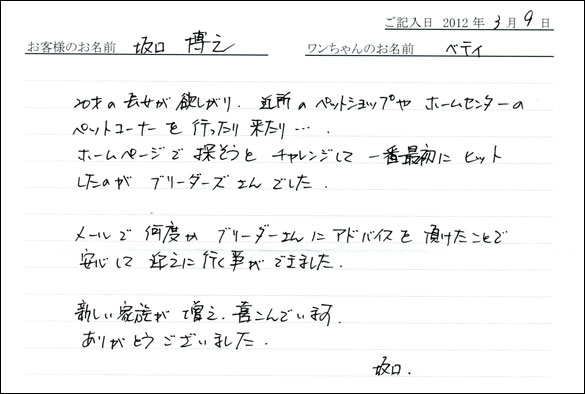 ご記入日 2012年 3月 9日
お客様のお名前 坂口 博之 ワンちゃんのお名前 ベティ
20才の長女が欲しがり、近所のペットショップや ホームセンターの
ペットコーナーを行ったり来たり…。
ホームページで探そうとチャレンジして 一番最初にヒット
したのが ブリーダーズさんでした。
メールで何度か ブリーダーさんにアドバイスを頂けたことで
安心して 迎えに行く事ができました。
新しい家族が増え、喜こんでいます。
ありがとうございました。
坂口.